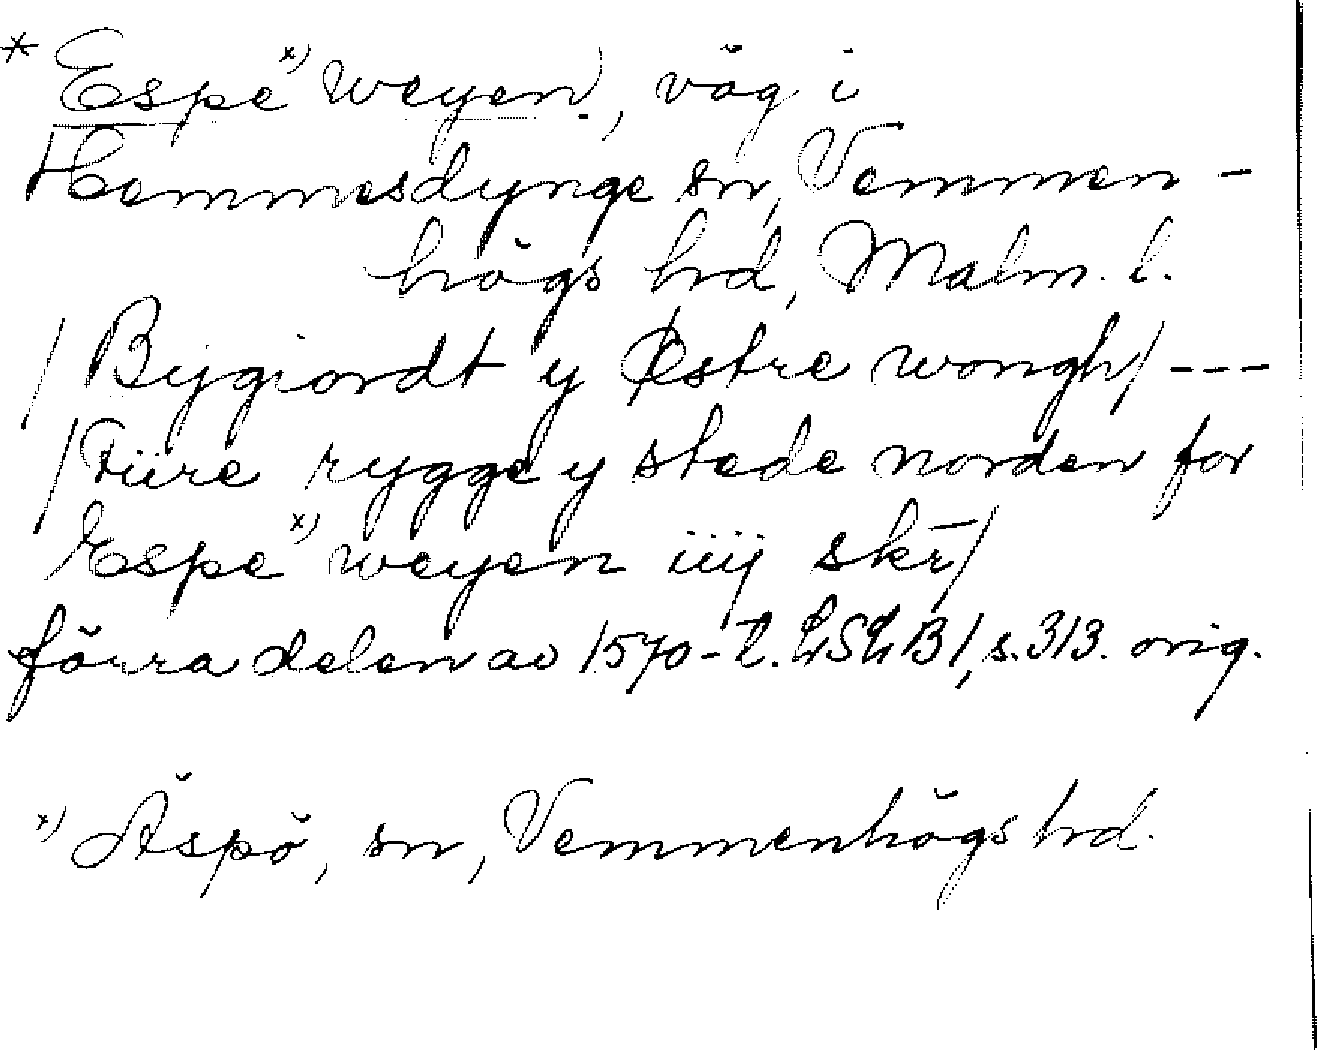 * Espe x) weyen, väg i
Hemmesdynge sn, Vemmen-
högs hrd, Malm. l.
/Bygiordt y Østre wongh/ ---
/Fiire rygge y stede norden for
Espe x) weyen iiij skr̄/
förra delen av 1570-t. LSLB1, s. 313. orig.
x) Äspö, sn, Vemmenhögs hrd.